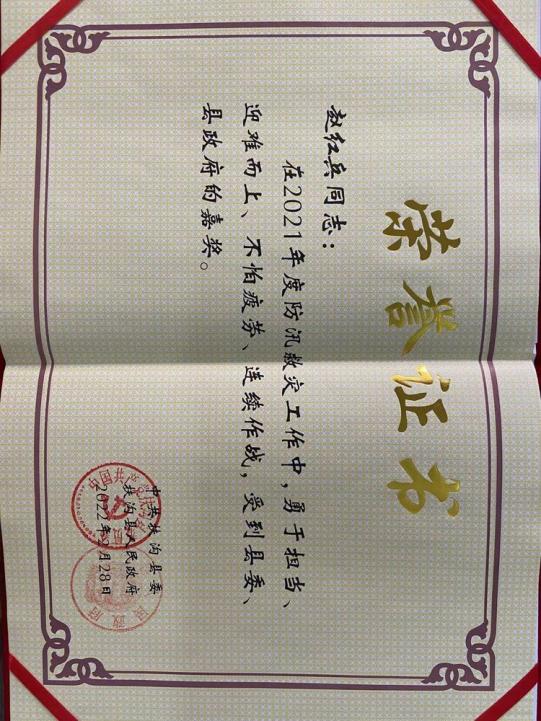 荣誉证书
赵红兵同志：
在2021年度防汛救灾工作中，勇于担当、
迎难而上、不怕疲劳、连续作战，受到县委、
县政府的嘉奖。
中共扶沟县委
扶沟县人民政府
2022年2月28日